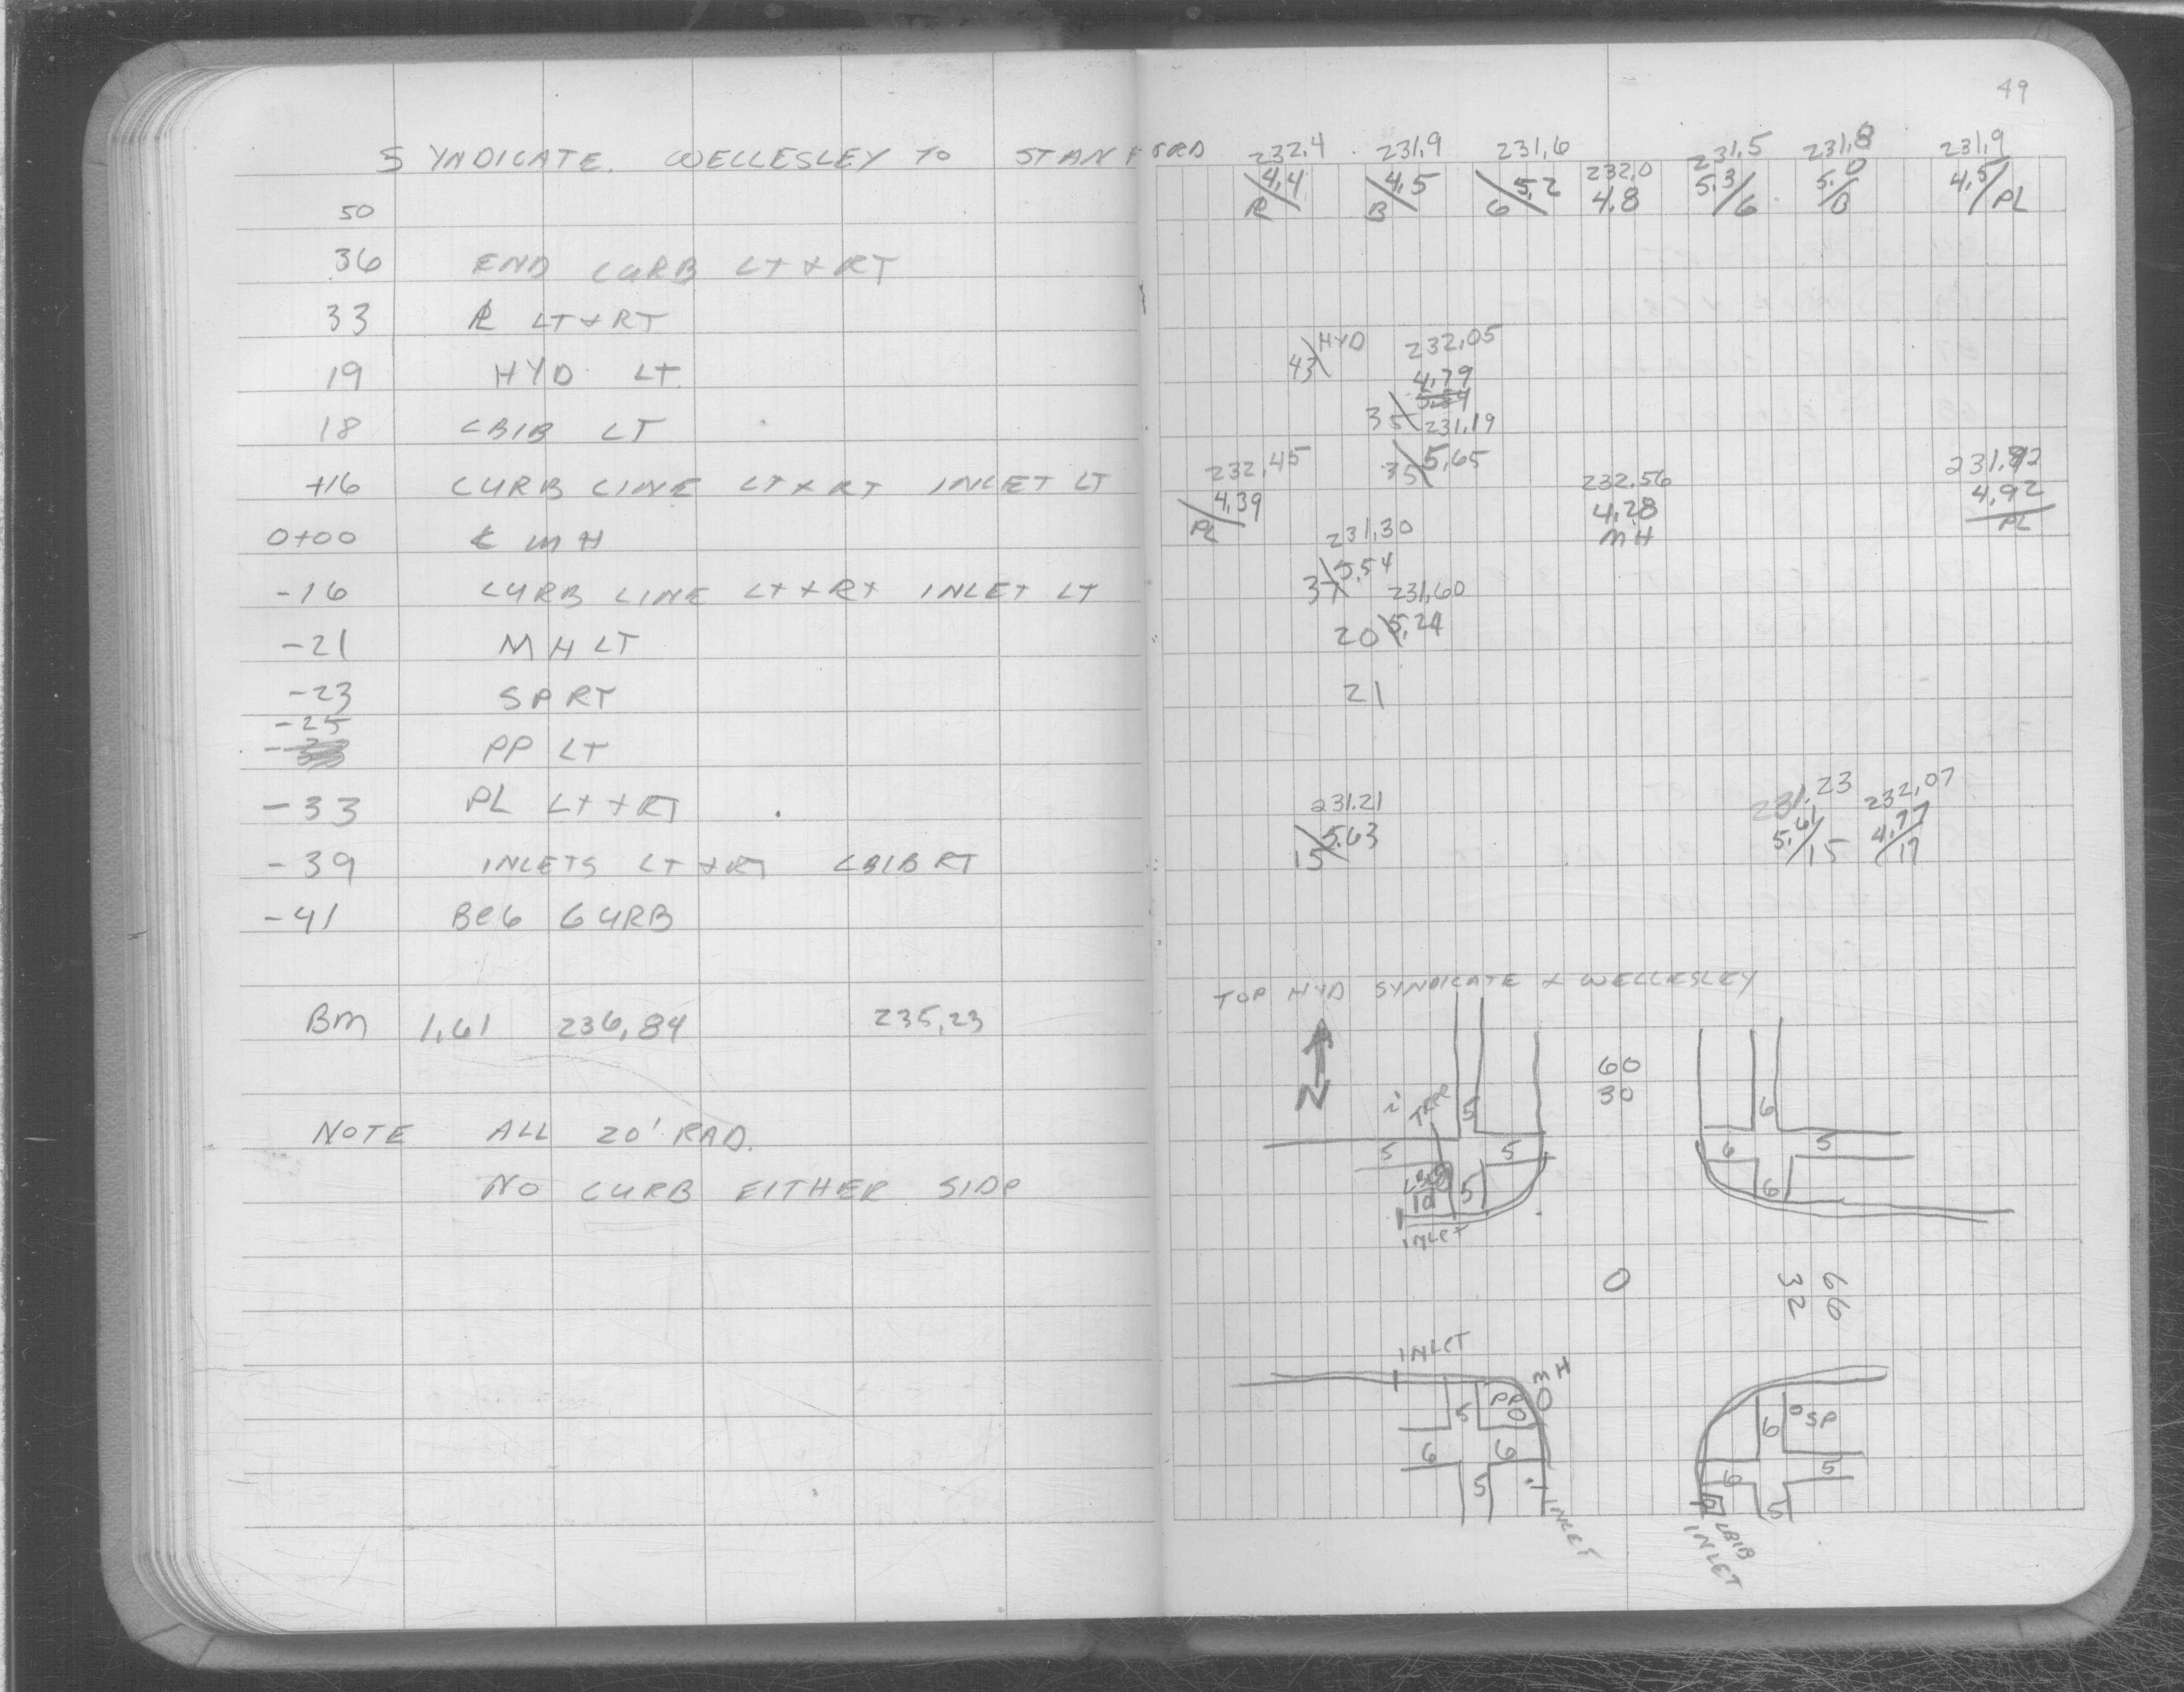 49
SYNDICATE. WELLESLEY TO STANFORD
232.4 231.9 231.6 232.0 231.5 231.8 231.9
50 4.4 4.5 5.2 4.8 5.3 5.0 4.5
B 6 6 B PL
36 END CURB LT + RT
33 LT + RT
19 HYD LT
43 HYD 232.05
4.79
18 CBIB LT
35 231.19
35 5.65
+16 CURB LINE LT + RT INLET LT
232.45 232.56 231.92
4.39 4.28 4.92
PL MH PL
0+00 MH
231.30
37 5.54
-16 CURB LINE LT + RT INLET LT
231.60
20 5.24
-21 MH LT
-23 SP RT
21
-25
PP LT
-33 PL LT + RT
231.21 231.23 232.07
5.63 5.61 4.77
15 15 17
-39 INLETS LT + RT CBIB RT
-41 BEG CURB
TOP HYD SYNDICATE & WELLESLEY
BM 1.61 236.84 235.23
N
60
30
NOTE ALL 20' RAD.
NO CURB EITHER SIDE
TREE
5 6
5 5 6 5
5 6
INLET
0
66
32
INLET
MH
5 PP 6 SP
6 6 5
5 6 5
INLET
CBIB
INLET